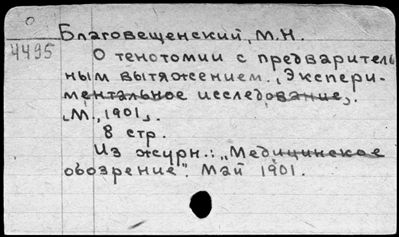 О
4495
Благовещенский, М.Н.
О тенотомии с предваритель
ным вытяжением. „Экспери-
ментальное исследование„.
„М., 1901„.
8 стр.
Из журн.: „Медицинское
обозрение". Май 1901.